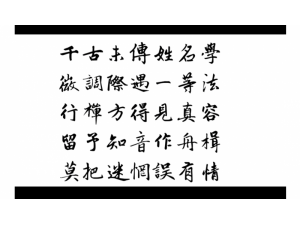 千古未傳姓名學
微調際遇一等法
行禪方得見真容
留予知音作舟楫
莫把迷惘誤有情